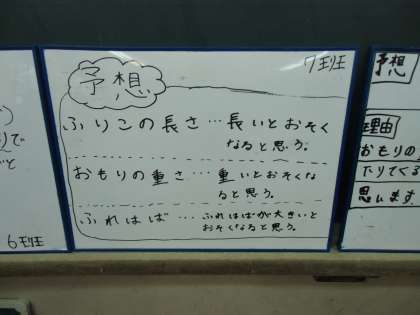 予想
7班
ふりこの長さ…長いとおそく
なると思う。
おもりの重さ…重いとおそくな
ると思う。
ふれはば…ふれはばが大きいと
おそくなると思う。
6班
予想
理由
おもりの
思います